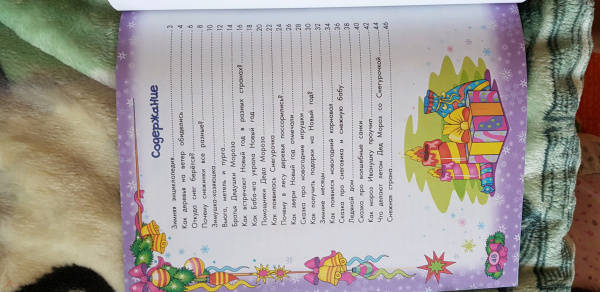 Содержание
Зимняя энциклопедия 3
Как деревья на ветер обиделись 4
Откуда снег берётся? 6
Почему снежинки все разные? 8
Зимушка-хозяюшка 10
Вьюга, метель и пурга 12
Братья Дедушки Мороза 14
Как встречают Новый год в разных странах? 16
Как Баба-яга украла Новый год 18
Помощники Деда Мороза 20
Как появилась Снегурочка 22
Почему в лесу деревья поссорились? 24
Как звери Новый год отмечали 26
Сказка про новогодние игрушки 28
Как получить подарок на Новый год? 30
Зимние месяцы 32
Как появился новогодний карнавал 34
Сказка про снеговика и снежную бабу 36
Ледяной дом 38
Сказка про волшебные санки 40
Как мороз Ивашку проучил 42
Что делают летом Дед Мороз со Снегурочкой 44
Снежная страна 46